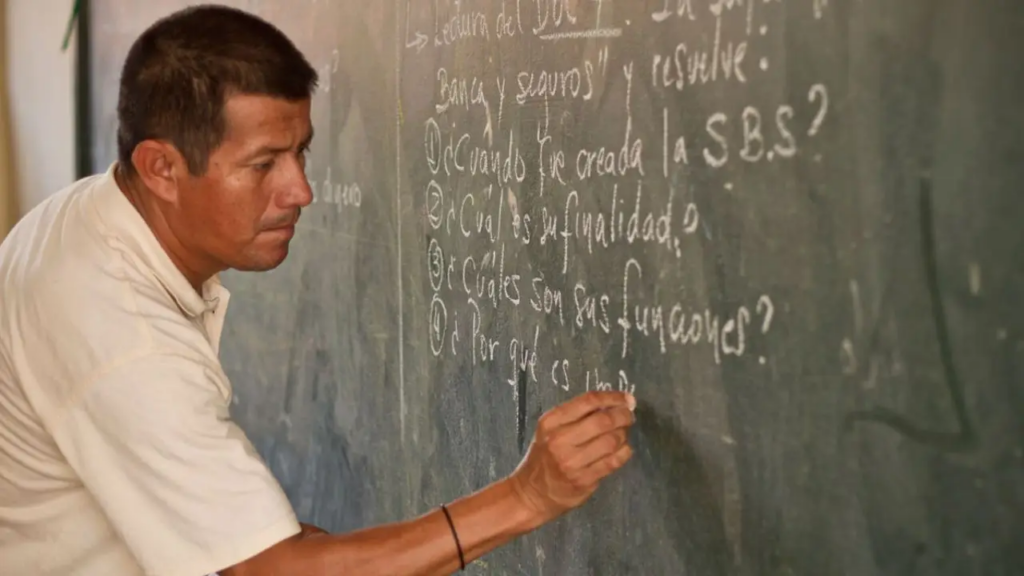 → Lectura del Doc
Banca y seguros" y resuelve:
① ¿Cuándo fue creada la S.B.S?
② ¿Cuál es su finalidad?
③ ¿Cuáles son sus funciones?
④ ¿Por qué es imp
dinero